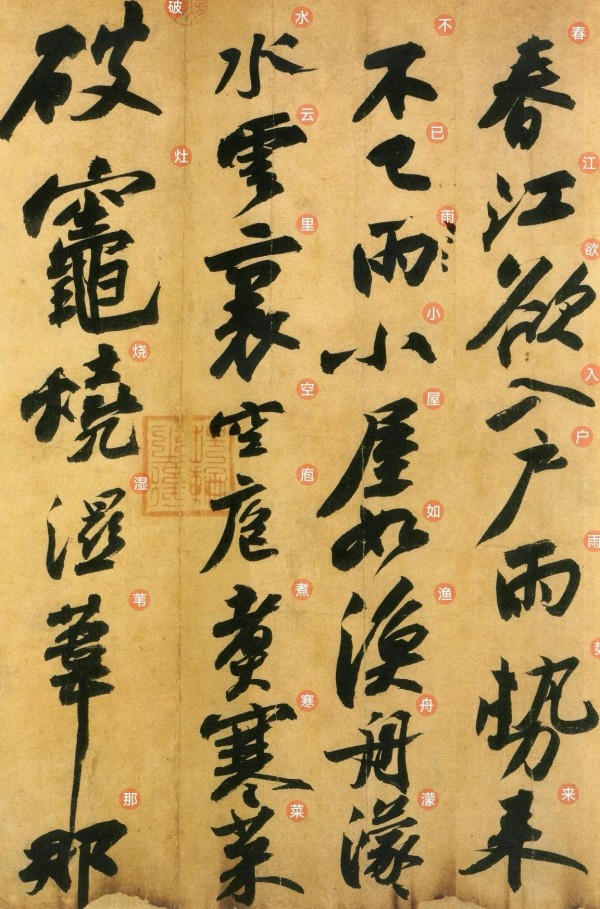 春江欲入户雨势来
不已雨小屋如渔舟濛
水云里空庖煮寒菜
破灶烧湿苇那
春江欲入户雨勢来
不已雨小屋如漁舟濛
水雲裏空庖煮寒菜
破竈燒濕葦那